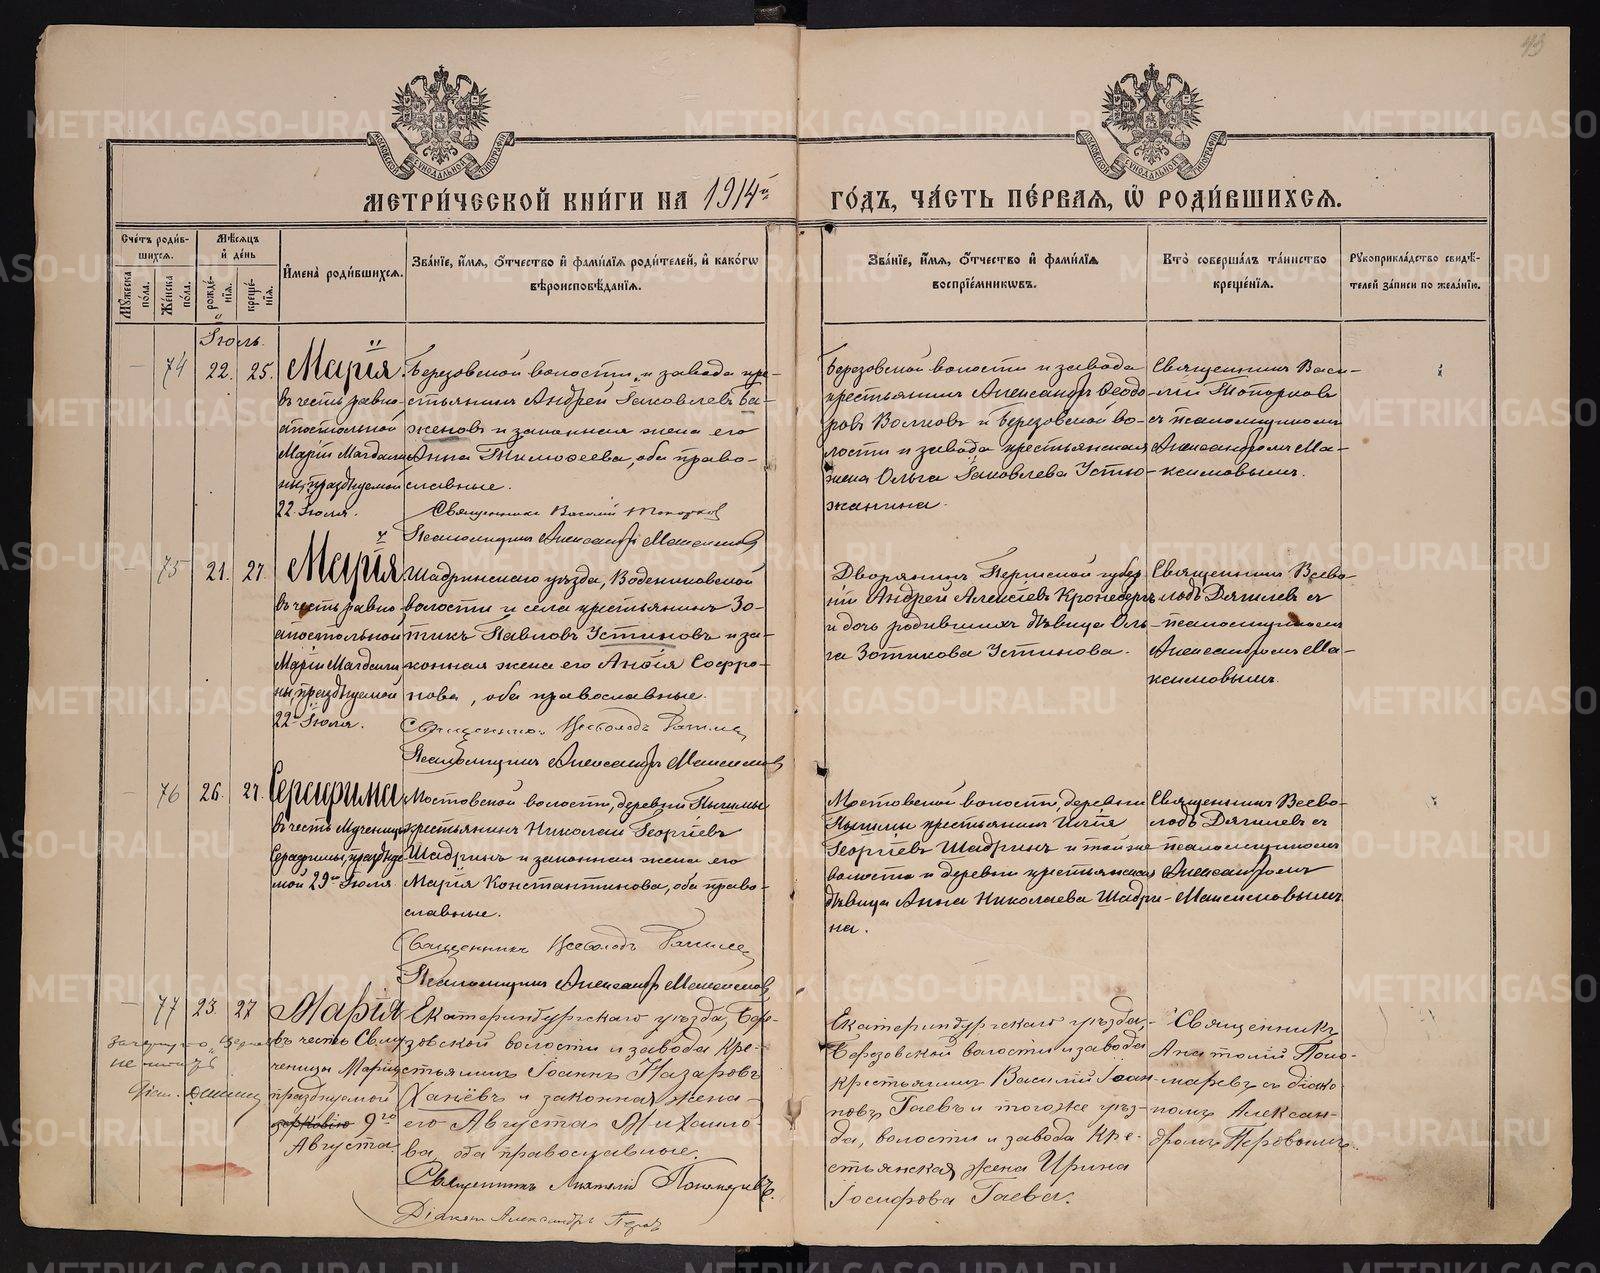 43
МЕТРИ́ЧЕСКОЙ КНИ́ГИ НА 1914й
ГО́ДЪ, ЧА́СТЬ ПЕ́РВАЯ, Ѽ РОДИ́ВШИХСЯ.
Сче́тъ роди́в-
шихся.
Мꙋ́жеска по́ла.
Же́нска по́ла.
Мѣ́сяцъ
и҆ де́нь
рожде́-
нїя.
креще́-
нїя.
И҆мена̀ роди́вшихся.
Зва́нїе, и҆́мя, ѻ҆́тчество и҆ фамилїя роди́телей, и҆ како́гѡ
вѣроисповѣ́данїя.
Зва́нїе, и҆́мя, ѻ҆́тчество и҆ фамилїя
воспрїе́мникѡвъ.
Кто̀ соверша́лъ та́инство
креще́нїя.
Рꙋкоприкла́дство свидѣ́-
телей за́писи по жела́нїю.
Іюль.
74
22.
25.
Марія
въ честь равно-
апостольной
Маріи Магдали-
ны, празднуемой
22 Іюля.
Березовской волости и завода кре-
стьянинъ Андрей Іаковлевъ Ба-
женовъ и законная жена его
Анна Тимоѳеева, оба право-
славные.
Священникъ Василій Топорковъ
Псаломщикъ Александръ Максимовъ
Березовской волости и завода
крестьянинъ Александръ Ѳеодо-
ровъ Волковъ и Березовской во-
лости и завода крестьянская
жена Ольга Іаковлева Устю-
жанина.
Священникъ Васи-
лій Топорковъ
съ псаломщикомъ
Александромъ Ма-
ксимовымъ.
75
21.
27.
Марія
въ честь равно-
апостольной
Маріи Магдали-
ны, празднуемой
22 Іюля.
Шадринскаго уѣзда, Водениковской
волости и села крестьянинъ Зо-
тикъ Павловъ Устиновъ и за-
конная жена его Анѳія Софро-
нова, оба православные.
Священникъ Всеволодъ
Псаломщикъ Александръ Максимовъ
Дворянинъ Пермской губер-
ніи Андрей Алексіевъ Кронебергъ
и дочь родившихъ дѣвица Оль-
га Зотикова Устинова.
Священникъ Всево-
лодъ Дягилевъ съ
псаломщикомъ
Александромъ Ма-
ксимовымъ.
76
26.
27.
Серафима
въ честь Мученицы
Серафимы, празднуе-
мой 29 Іюля
Мостовской волости, деревни Пышмы
крестьянинъ Николай Георгіевъ
Шадринъ и законная жена его
Марія Константинова, оба право-
славные.
Священникъ Всеволодъ
Псаломщикъ Александръ Максимовъ
Мостовской волости, деревни
Пышмы крестьянинъ Илія
Георгіевъ Шадринъ и той же
волости и деревни крестьянская
дѣвица Анна Николаева Шадри-
на.
Священникъ Всево-
лодъ Дягилевъ съ
псаломщикомъ
Александромъ
Максимовымъ
77
23.
27
не
Марія
въ честь Св. му-
ченицы Маріи
празднуемой
церковію 9го
Августа.
Екатеринбургскаго уѣзда, Бере-
зовской волости и завода кре-
стьянинъ Іоаннъ Назаровъ
Ханёвъ и законная жена
его Августа Михаило-
ва, оба православные.
Священникъ Анатолій Пономаревъ.
Діаконъ Александръ Перовъ
Екатеринбургскаго уѣзда,
Березовской волости и завода
крестьянинъ Василій Іоан-
новъ Гаевъ и того же уѣз-
да, волости и завода кре-
стьянская жена Ирина
Іосифова Гаева.
Священникъ
Анатолій Поно-
маревъ съ діако-
номъ Алексан-
дромъ Перовымъ.
METRIKI.GASO-URAL.RU